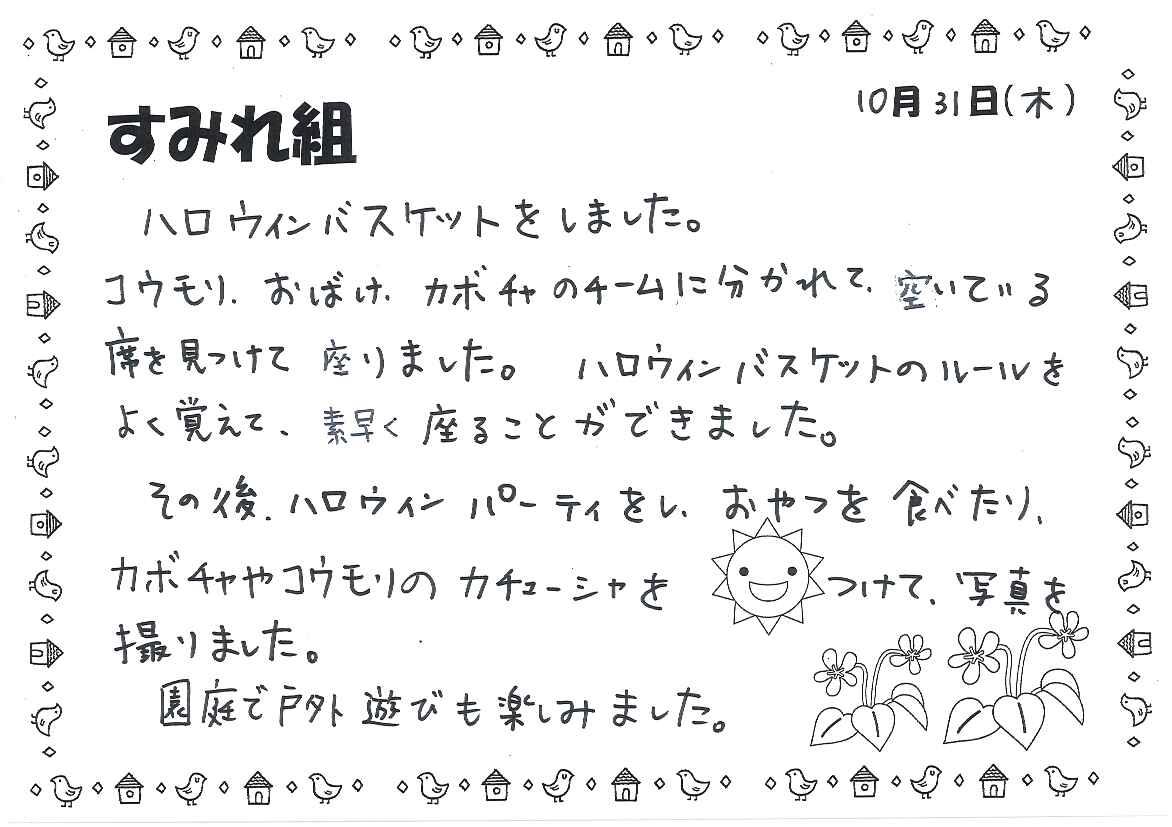 10月31日(木)
すみれ組
ハロウィンバスケットをしました。
コウモリ、おばけ、カボチャのチームに分かれて、空いている
席を見つけて座りました。ハロウィンバスケットのルールを
よく覚えて、素早く座ることができました。
その後、ハロウィンパーティをし、おやつを食べたり、
カボチャやコウモリのカチューシャをつけて、写真を
撮りました。
園庭で戸外遊びも楽しみました。